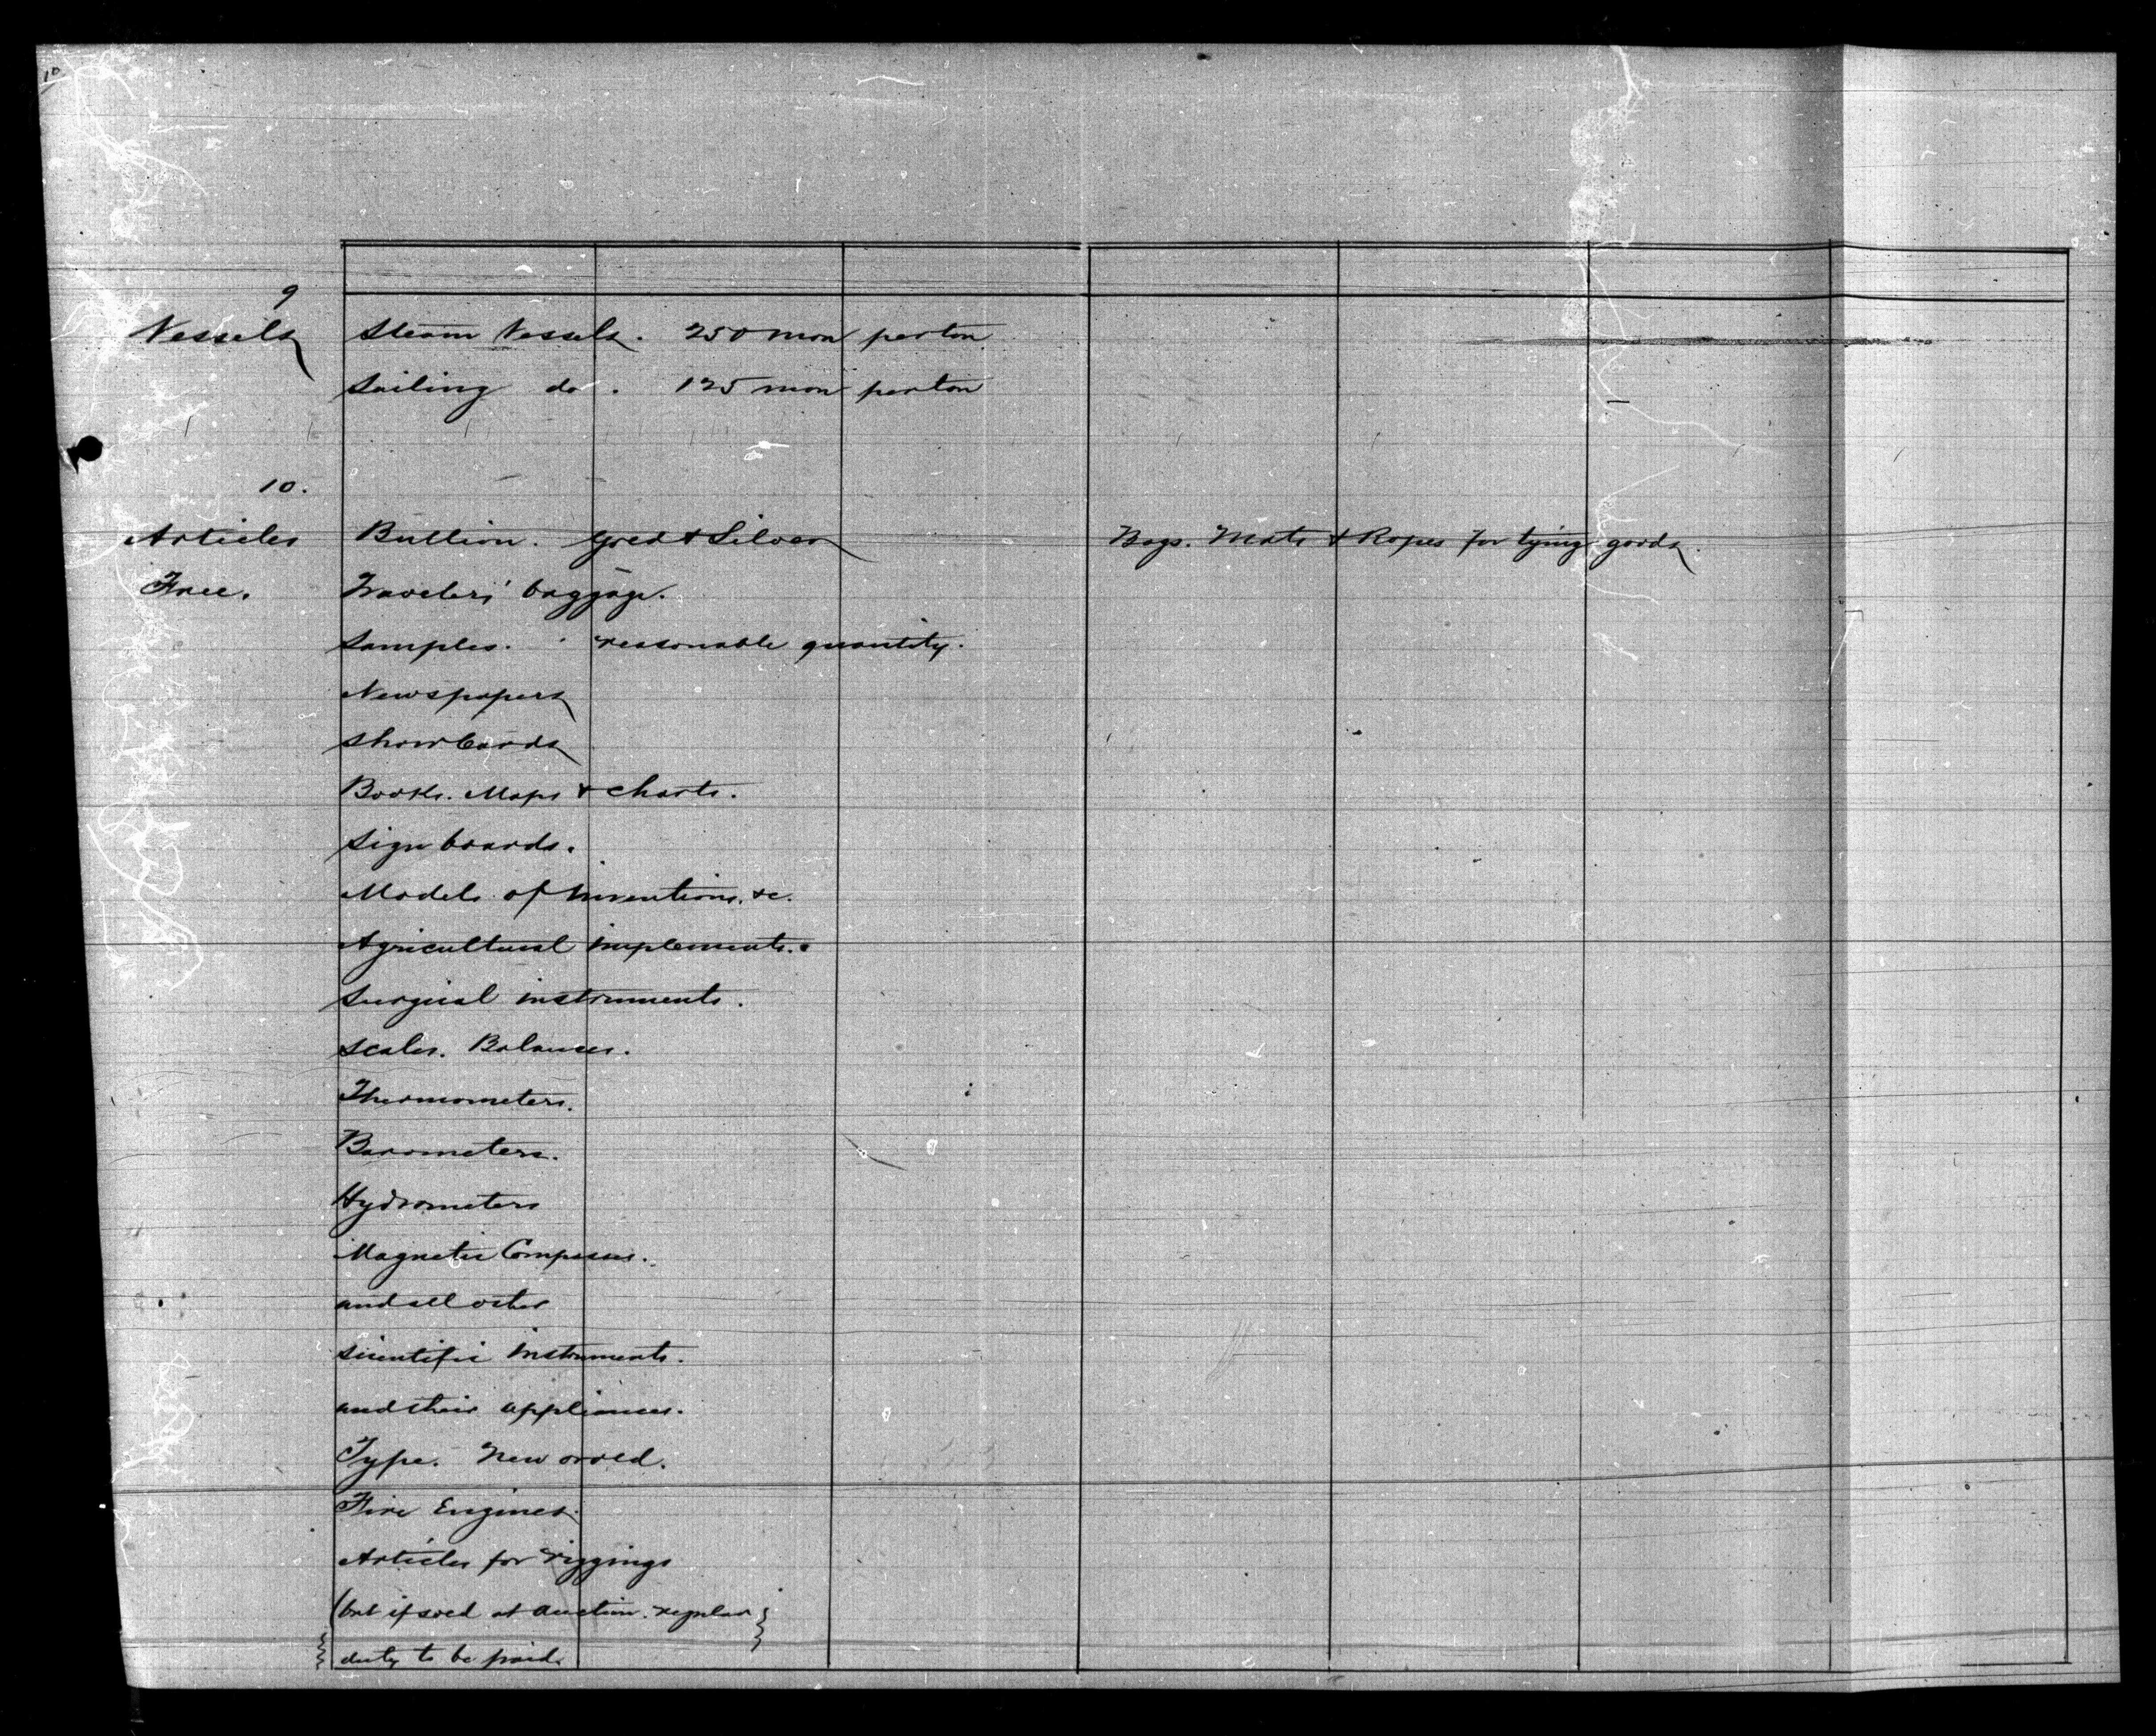 10
9
Vessels Steam Vessels. 250 mon per ton
Sailing do. 125 mon per ton
10.
Articles Bullion. Gold & Silver Bags. Mats & Ropes for tying goods.
Free. Travelers' baggage.
Samples. reasonable quantity.
Newspapers
Showboards
Books. Maps & Charts.
Sign boards.
Models of Inventions. &c.
Agricultural implements.
Surgical instruments.
Scales. Balances.
Thermometers.
Barometers.
Hydrometers
Magnetic Compasses.
and all other
Scientific Instruments.
and their appliances.
Type. New or old.
Fire Engines.
Articles for riggings
(but if sold at auction. regular
duty to be paid.